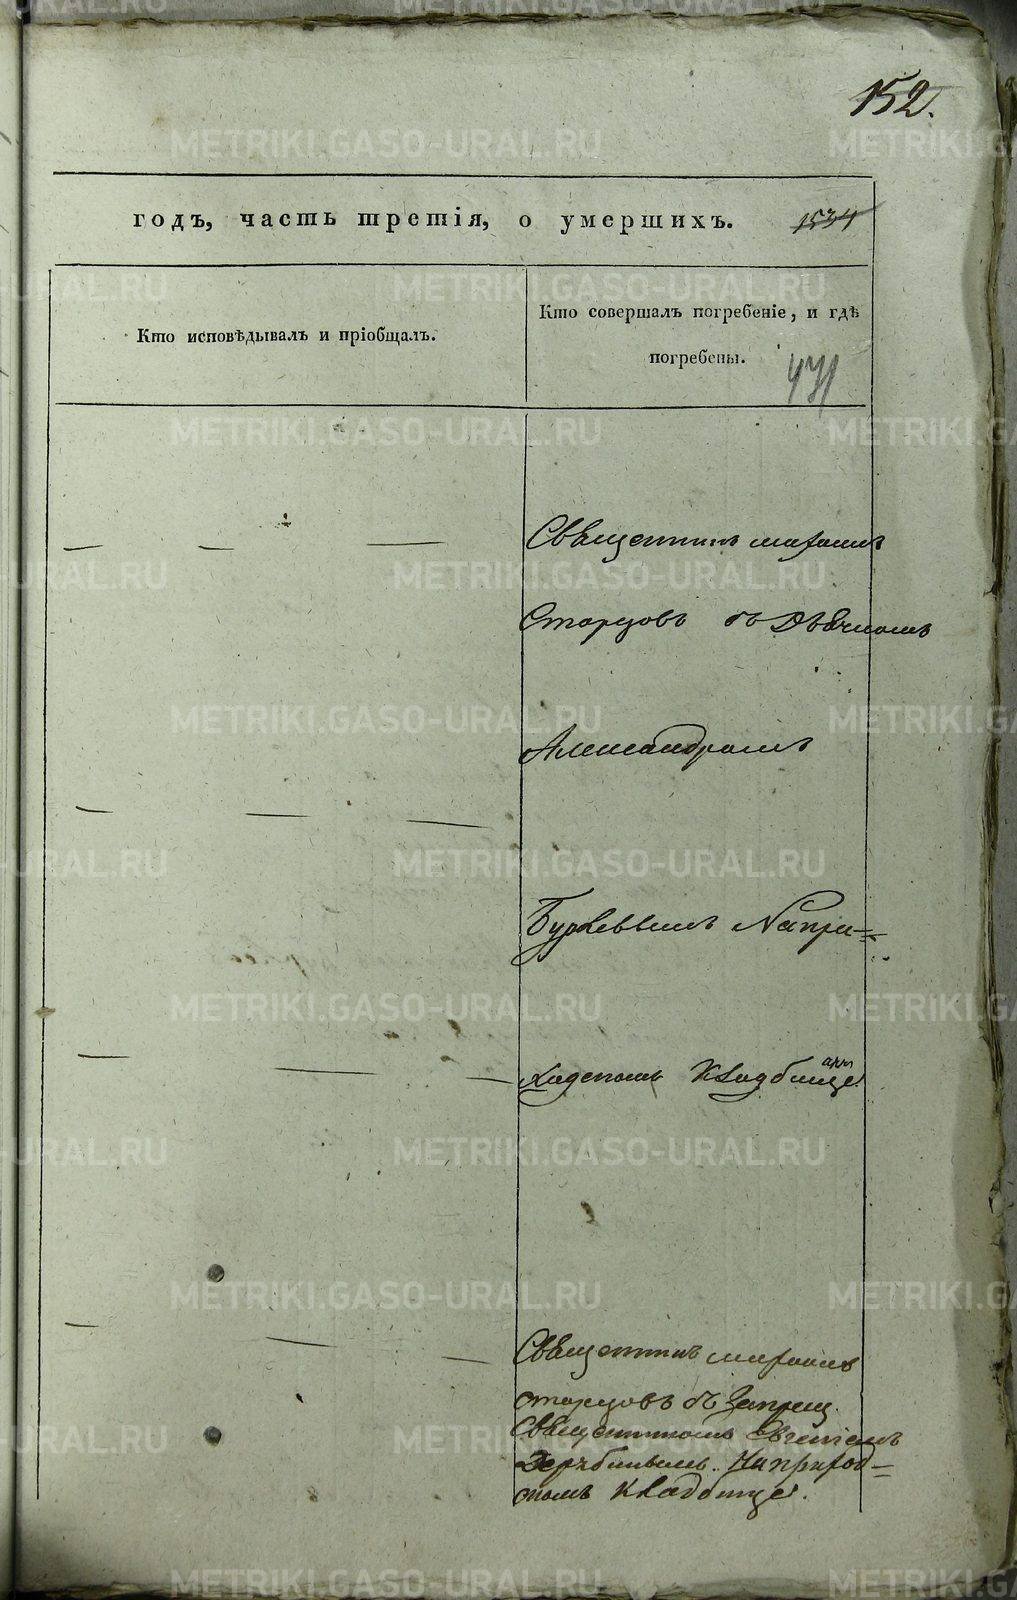 152.
годъ, часть третія, о умершихъ. 1534
Кто исповѣдывалъ и пріобщалъ.
Кто совершалъ погребеніе, и гдѣ
погребены. 471
Священникъ
Старцовъ съ Дьячкомъ
Александромъ
На при=
ходскомъ кладбище
Священникъ
Старцовъ съ Запрещ.
Священникомъ Евгеніемъ
На приход=
скомъ кладбище.
METRIKI.GASO-URAL.RU